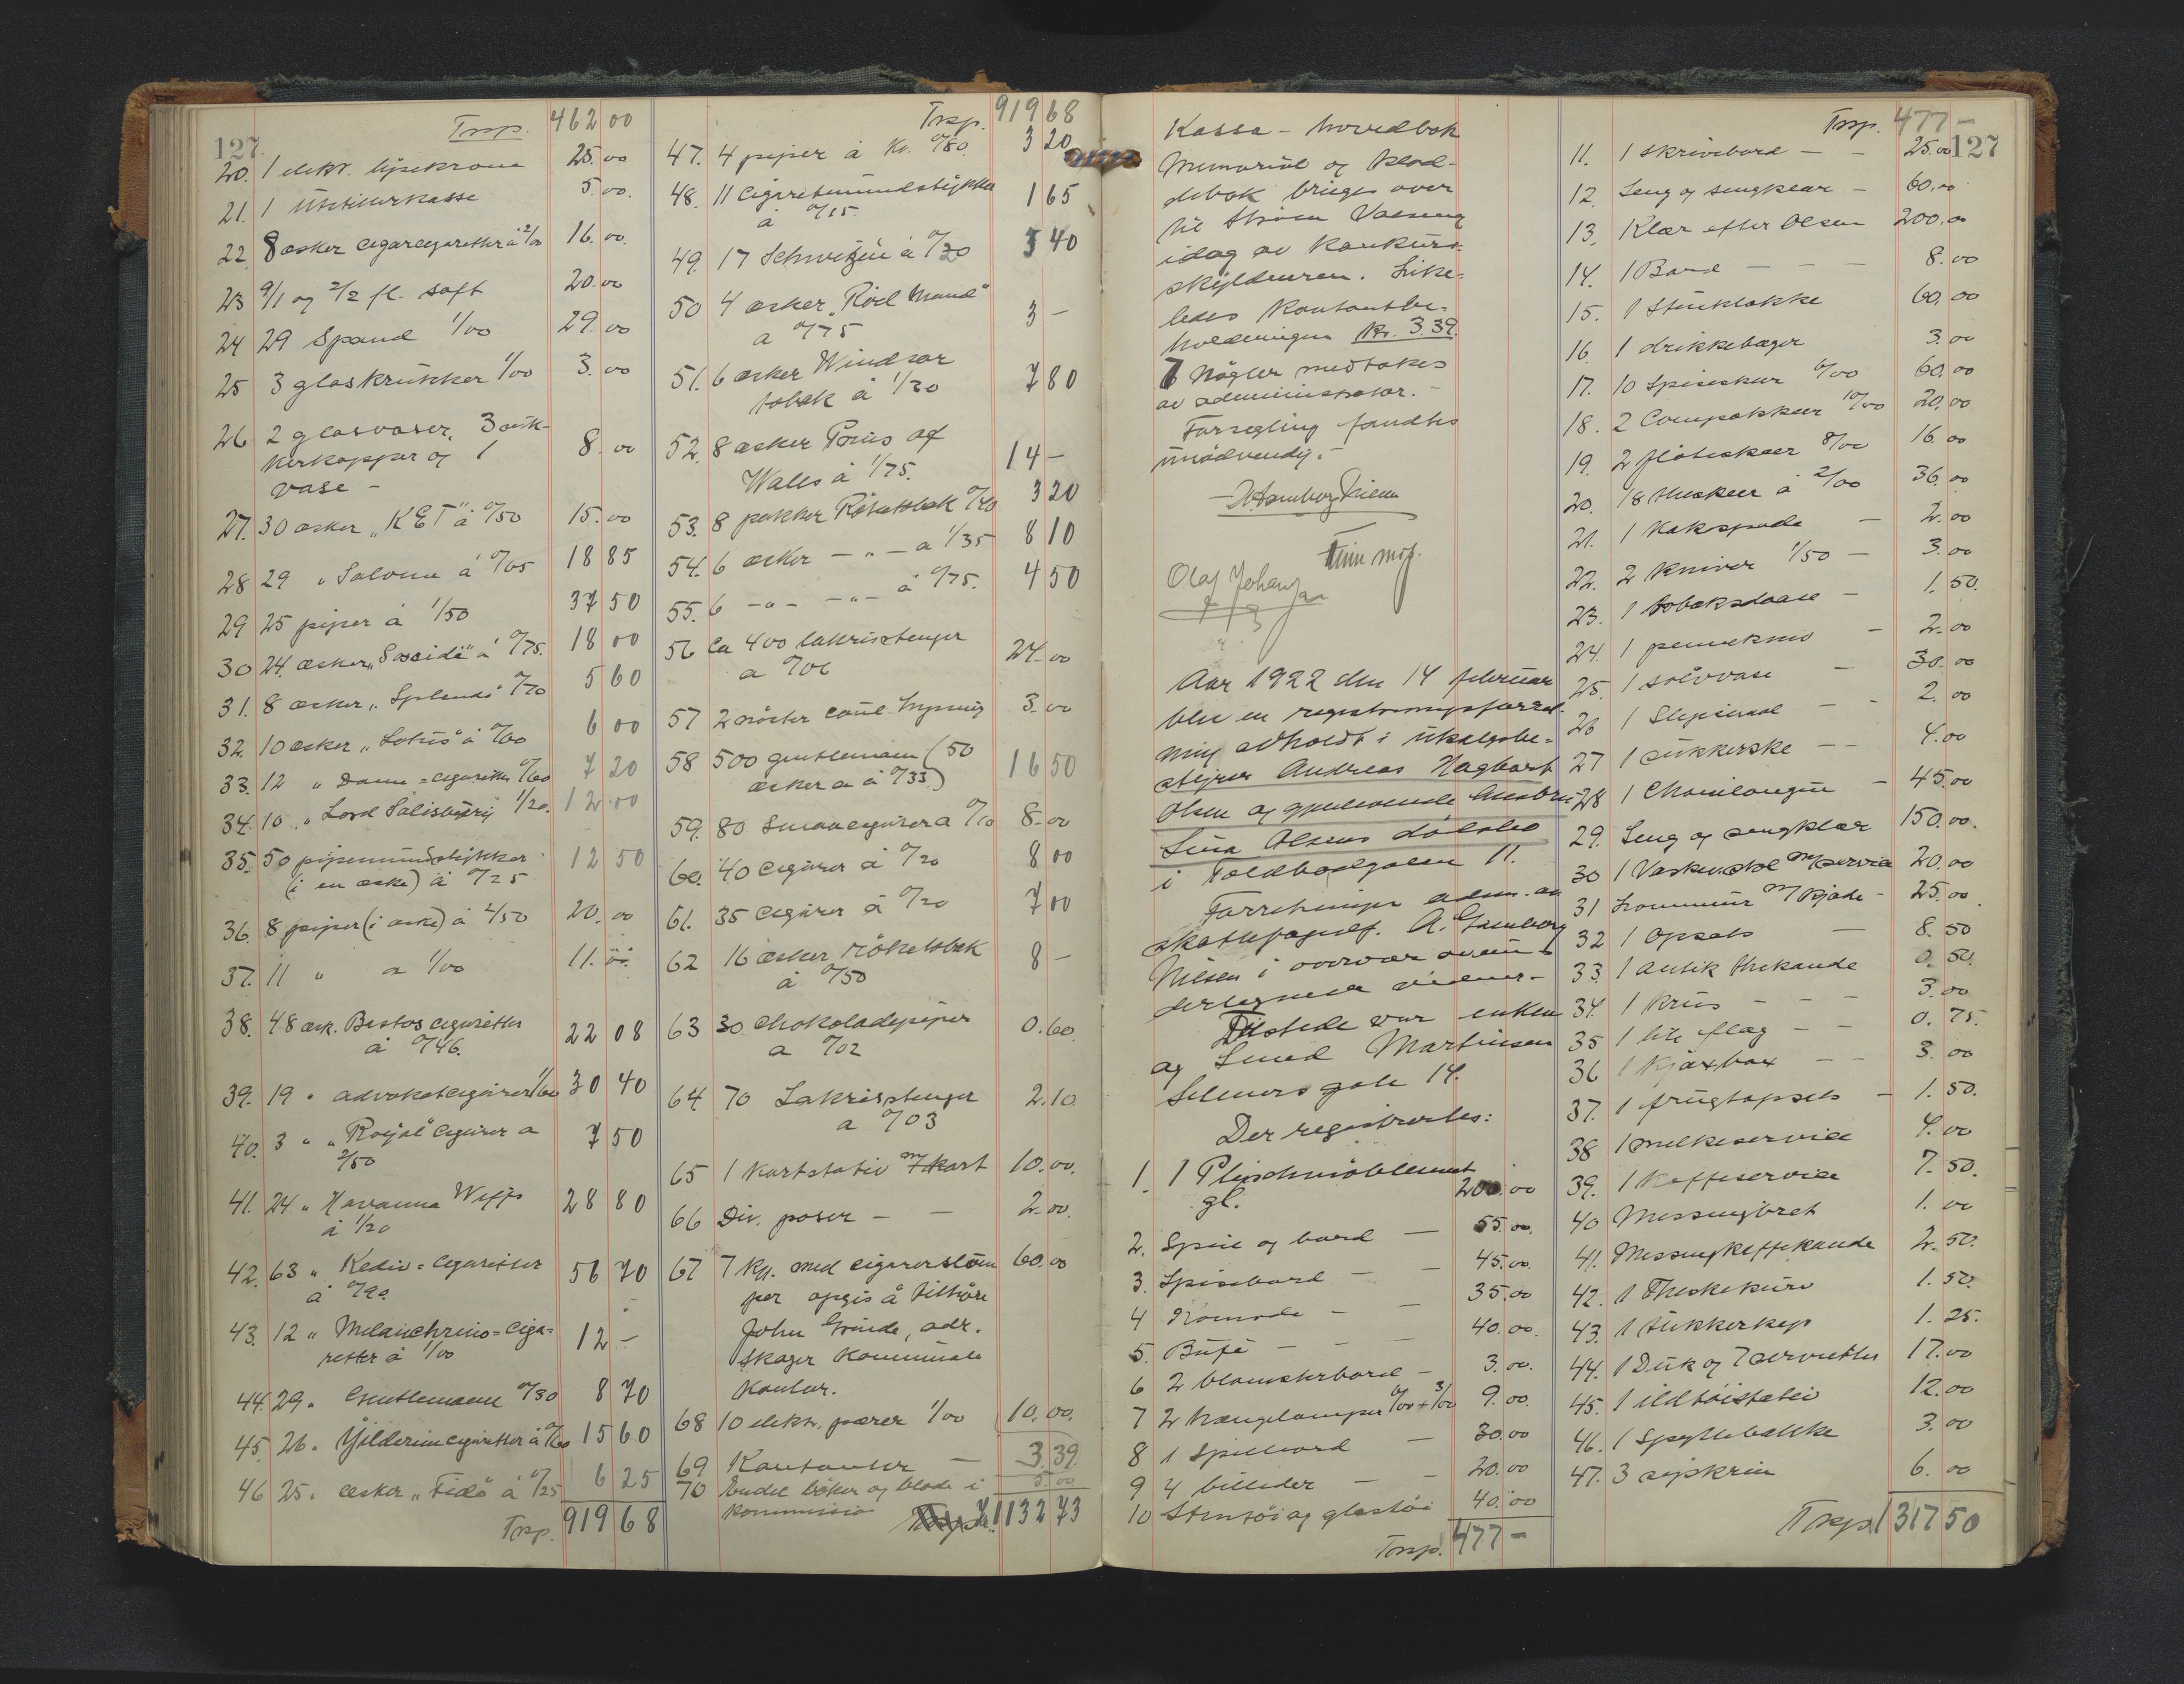 127.
Trsp. 462 00
20. 1 elektr. lysekrone 25.00
21. 1 5.00.
22. 8 æsker cigarcigaretter à 2/00 16.00.
23 9/1 og 2/2 fl. saft 20.00
24 29 Spand 1/00 29.00
25 3 glaskrukker 1/00 3.00
26 2 glasvaser, 3
og 1 8.00
vase -
27. 30 æsker „KET" à 0/50 15.00
28 29 „ Salome à 0/65 18 85
29 25 piper à 1/50 37 50
30 24 æsker à 0/75. 18 00
31. 8 æsker „Splendi" 0/70 5 60
32. 10 æsker „Lotus" à 0/60 6 00
33. 12 „ Dame=cigaretter 0/60 7 20
34. 10 „ Lord Salisbury 1/20. 12.00
35. 50 pipemundstykker 12 50
(i en æske) à 0/25
36. 8 piper (i æske) à 2/50 20.00
37. 11 " a 1/00 11.00.
38. 48 æsk. Bestos cigaretter
à 0/46. 22 08
39. 19 " advokatcigarer 1/60 30 40
40. 3 " „Royal" cigarer a 7 50
2/50
41. 24 " Havanna Wiffs 28 80
à 1/20
42. 63 " Kediv=Cigaretter 56 70
à 0/90.
43. 12 " Melanchrino=Ciga= 12 -
retter à 1/00
44. 29 " Gentlemann 0/30 8 70
45. 26 " Yilderimcigaretter à 0/60 15 60
46 25 " æsker „Fido" à 0/25 6 25
Trsp. 919 68
Trsp. 919 68
47. 4 piper à Kr. 0/80. 3 20
48. 11 Cigaretmundstykker 1 65
à 0/15.
49. 17 à 0/20 3 40
50 4 æsker „Röd Mand" 3 -
a 0/75
51. 6 æsker Windsor
tobak à 1/30 7 80
52. 8 æsker Prins of
Wales à 1/75. 14 -
53. 8 pakker Röketobak 0/40 3 20
54. 6 æsker - " - a 1/35 8 10
55. 6 - " - - " - à 0/75. 4 50
56 Ca 400 lakrisstenger
a 0/06 24.00
57 2 3.00
58 500 gentlemann (50
æsker a à 0/33) 16 50
59. 80 Smaacigarer a 0/10 8.00
60. 40 cigarer à 0/20 8 00
61. 35 cigarer à 0/20 7 00
62 16 æsker röketobak
à 0/50 8 -
63 30 chokoladepiper 0.60.
a 0/02
64 70 Lakrisstenger 2.10
a 0/03
65 1 kartstativ m/kart 10.00.
66 Div. poser - - 2.00.
67 7 kg. med cigarer 60.00
opgis å tilhöre
John Grinde, adr.
Skager kommunale
Kontor.
68 10 elektr. pærer 1/00 10.00.
69 Kontanter - 3.39.
70 Endel böker og blade i 5.00
kommisio 1132 73
Kassa - hovedbok
Memorial og klad-
debok bringes over
til
idag av konkurs=
skyldneren. Like=
ledes kontantbe=
holdningen kr. 3.39.
7 Nögler medtokes
av administrator. -
Forsegling fandtes
unödvendig. -
Olaf Johansen
Aar 1922 den 14 februar
blev en registreringsforret=
ning avholdt i
Andreas Hagbart
Olsen og gjenlevende
Lina Olsens dödsbo
i Toldbodgaten 11.
Forretningen adm. av
skattefogedf. A. Gamborg
Nilsen i overvær av un-
dertegnede vidner -
Tilstede var enken
og Smed Martinsen
Selmersgate 14.
Der registrertes:
1. 1 Plüschmöblement
gl. 200.00
2. Speil og bord - 55.00.
3. Spisebord - - 45.00.
4 Komode - - 35.00
5. Büfe - - 40.00.
6 2 blomsterbord - 3.00.
7 2 hængelamper 6/00 + 3/00 9.00.
8 1 Spillebord - 30.00
9 4 billeder - - 20.00
10 Stentöi og glastöi 40.00
Trsp. 477 -
Trsp. 477 -
127
11. 1 skrivebord - - 25.00
12. Seng og sengklær - 60.00
13. Klær efter Olsen 200.00
14. 1 Bord - - - 8.00
15. 1 Stueklokke 60.00
16. 1 drikkebæger 3.00
17. 10 Spiseskeer 6/00 60.00
18. 2 Compotskeer 10/00 20.00
19. 2 flöteskeer 8/00 16.00
20. 18 theskeer à 2/00 36.00
21. 1 Kakespade - 2.00
22. 2 Kniver 1/50 - 3.00
23. 1 tobaksdaase - 1.50.
24. 1 pennekniv - 2.00
25. 1 sölvvase - 30.00
26 1 - - 2.00
27 1 sukkerske - - 4.00
28 1 Chaiselongue - 45.00
29. Seng og sengklær 150.00.
30 1 m/servise 20.00
31 m/ 25.00.
32 1 Opsats - 8.50
33. 1 antik thekande 0.50.
34. 1 Krus - - - 3.00
35 1 lite flag - - 0.75.
36 1 - - 3.00
37. 1 frugtopsats - 1.50.
38 1 melkeservise 4.00
39. 1 Kaffeservise 7.50.
40 Messingbret 1.00
41. Messingkaffekande 2.50.
42. 1 Theskekurv 1.50.
43. 1 Sukkerkop 1.25.
44. 1 Duk og 7 servietter 17.00
45. 1 ildtöistativ 12.00
46. 1 Spyttebakke 3.00
47. 3 6.00
Trsp. 1317 50